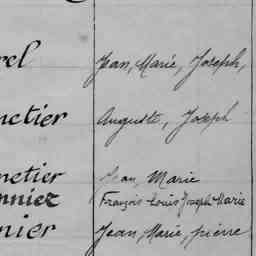 rel Jean, Marie, Joseph,
netier Auguste, Joseph
netier Jean, Marie
nnier François Louis Joseph Marie
nier Jean, Marie, pierre